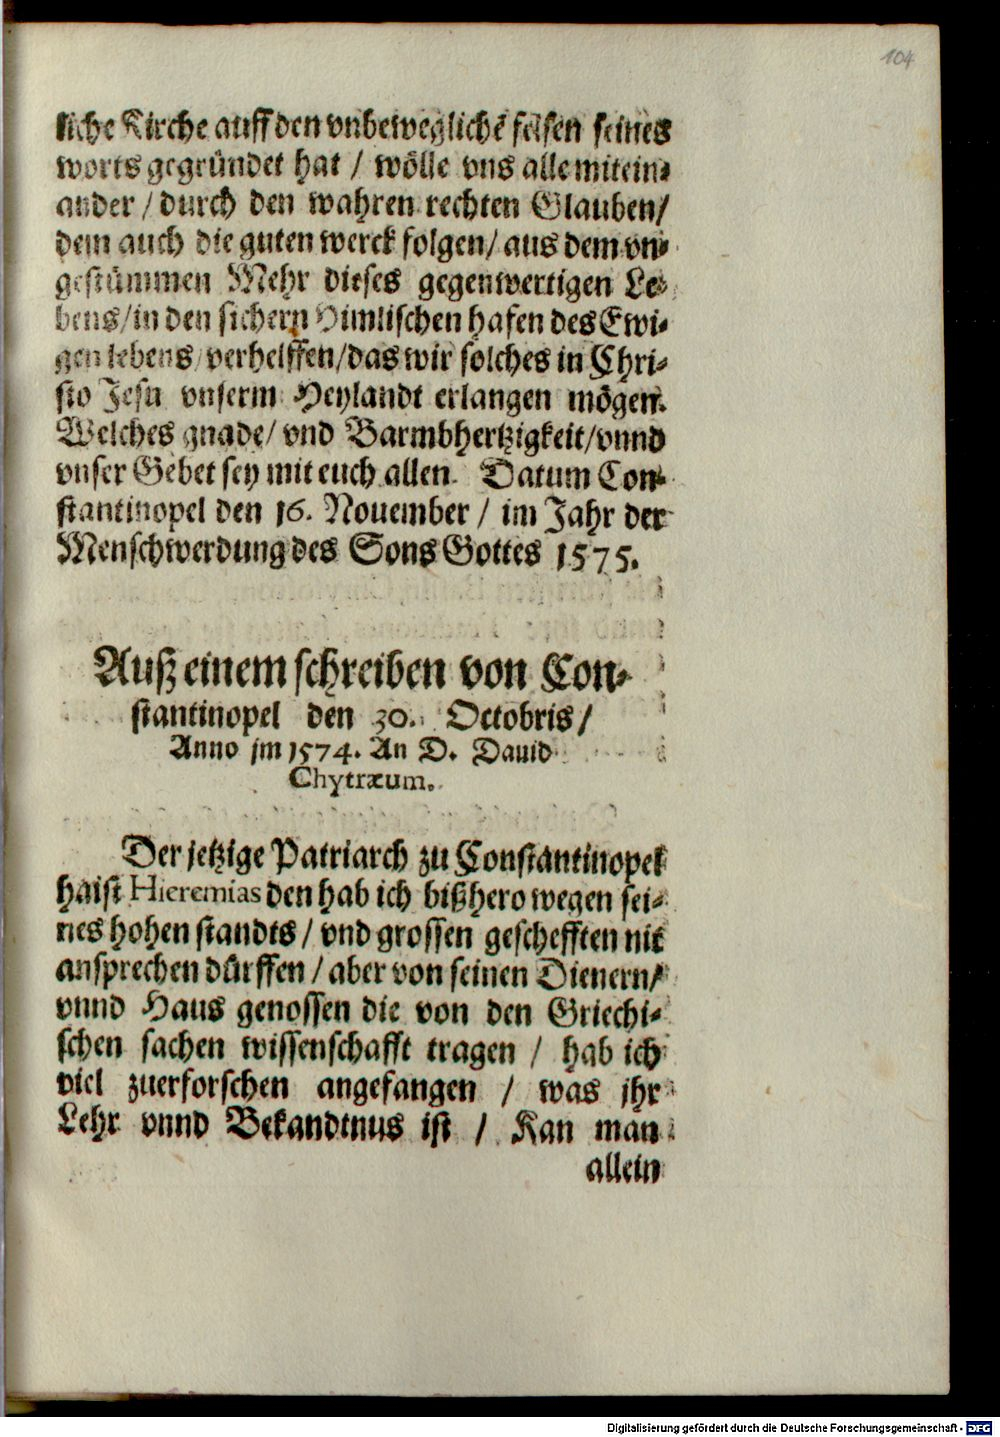 104
liche Kirche auff den vnbewegliche᷉ felsen seines
worts gegründet hat / wölle vns alle mitein⸗
ander / durch den wahren rechten Glauben /
dem auch die guten werck folgen / aus dem vn⸗
gestümmen Mehr dieses gegenwertigen Le⸗
bens / in den sichern Himlischen hafen des Ewi⸗
gen lebens / verhelffen / das wir solches in Chri⸗
sto Jesu vnserm Heylandt erlangen mögen.
Welches gnade / vnd Barmbhertzigkeit / vnnd
vnser Gebet sey mit euch allen. Datum Con⸗
stantinopel den 16. Nouember / im Jahr der
Menschwerdung des Sons Gottes 1575.
Auß einem schreiben von Con⸗
stantinopel den 30. Octobris /
Anno jm 1574. An D. Dauid
Chytræum.
Der jetzige Patriarch zu Constantinopel
haist Hieremias den hab ich bißhero wegen sei⸗
nes hohen standts / vnd grossen geschefften nit
ansprechen dürffen / aber von seinen Dienern /
vnnd Haus genossen die von den Griechi⸗
schen sachen wissenschafft tragen / hab ich
viel zuerforschen angefangen / was jhr
Lehr vnnd Bekandtnus ist / Kan man
allein
Digitalisierung gefördert durch die Deutsche Forschungsgemeinschaft - DFG